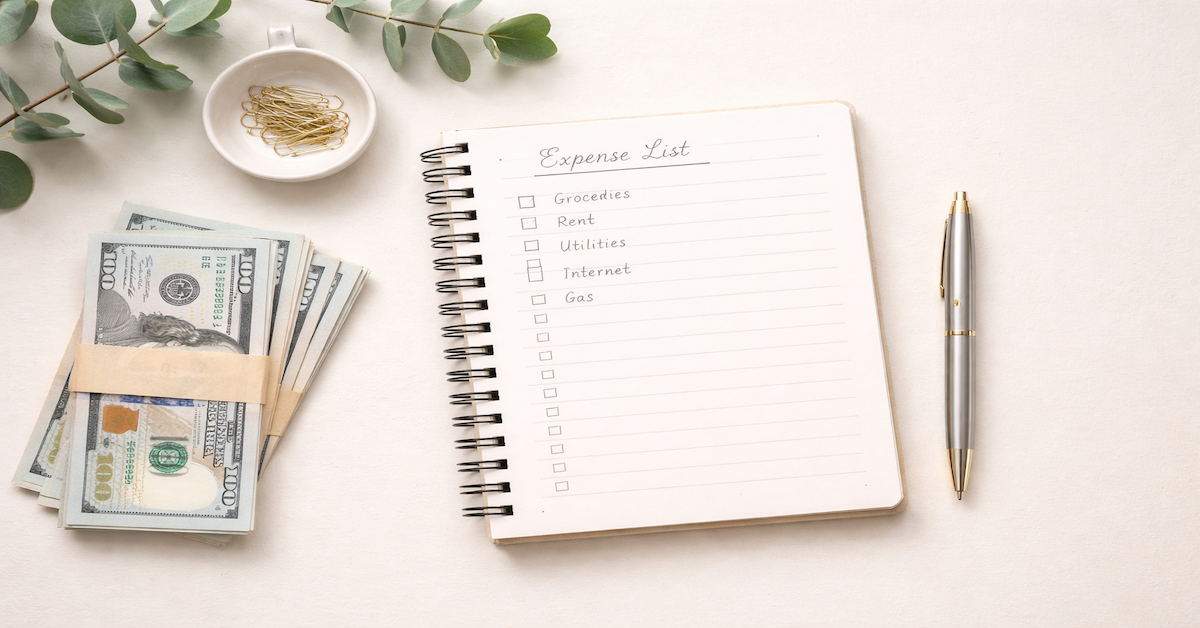 Expense List
Grocedies
Rent
Utilities
Internet
Gas
100
100
100
100
100